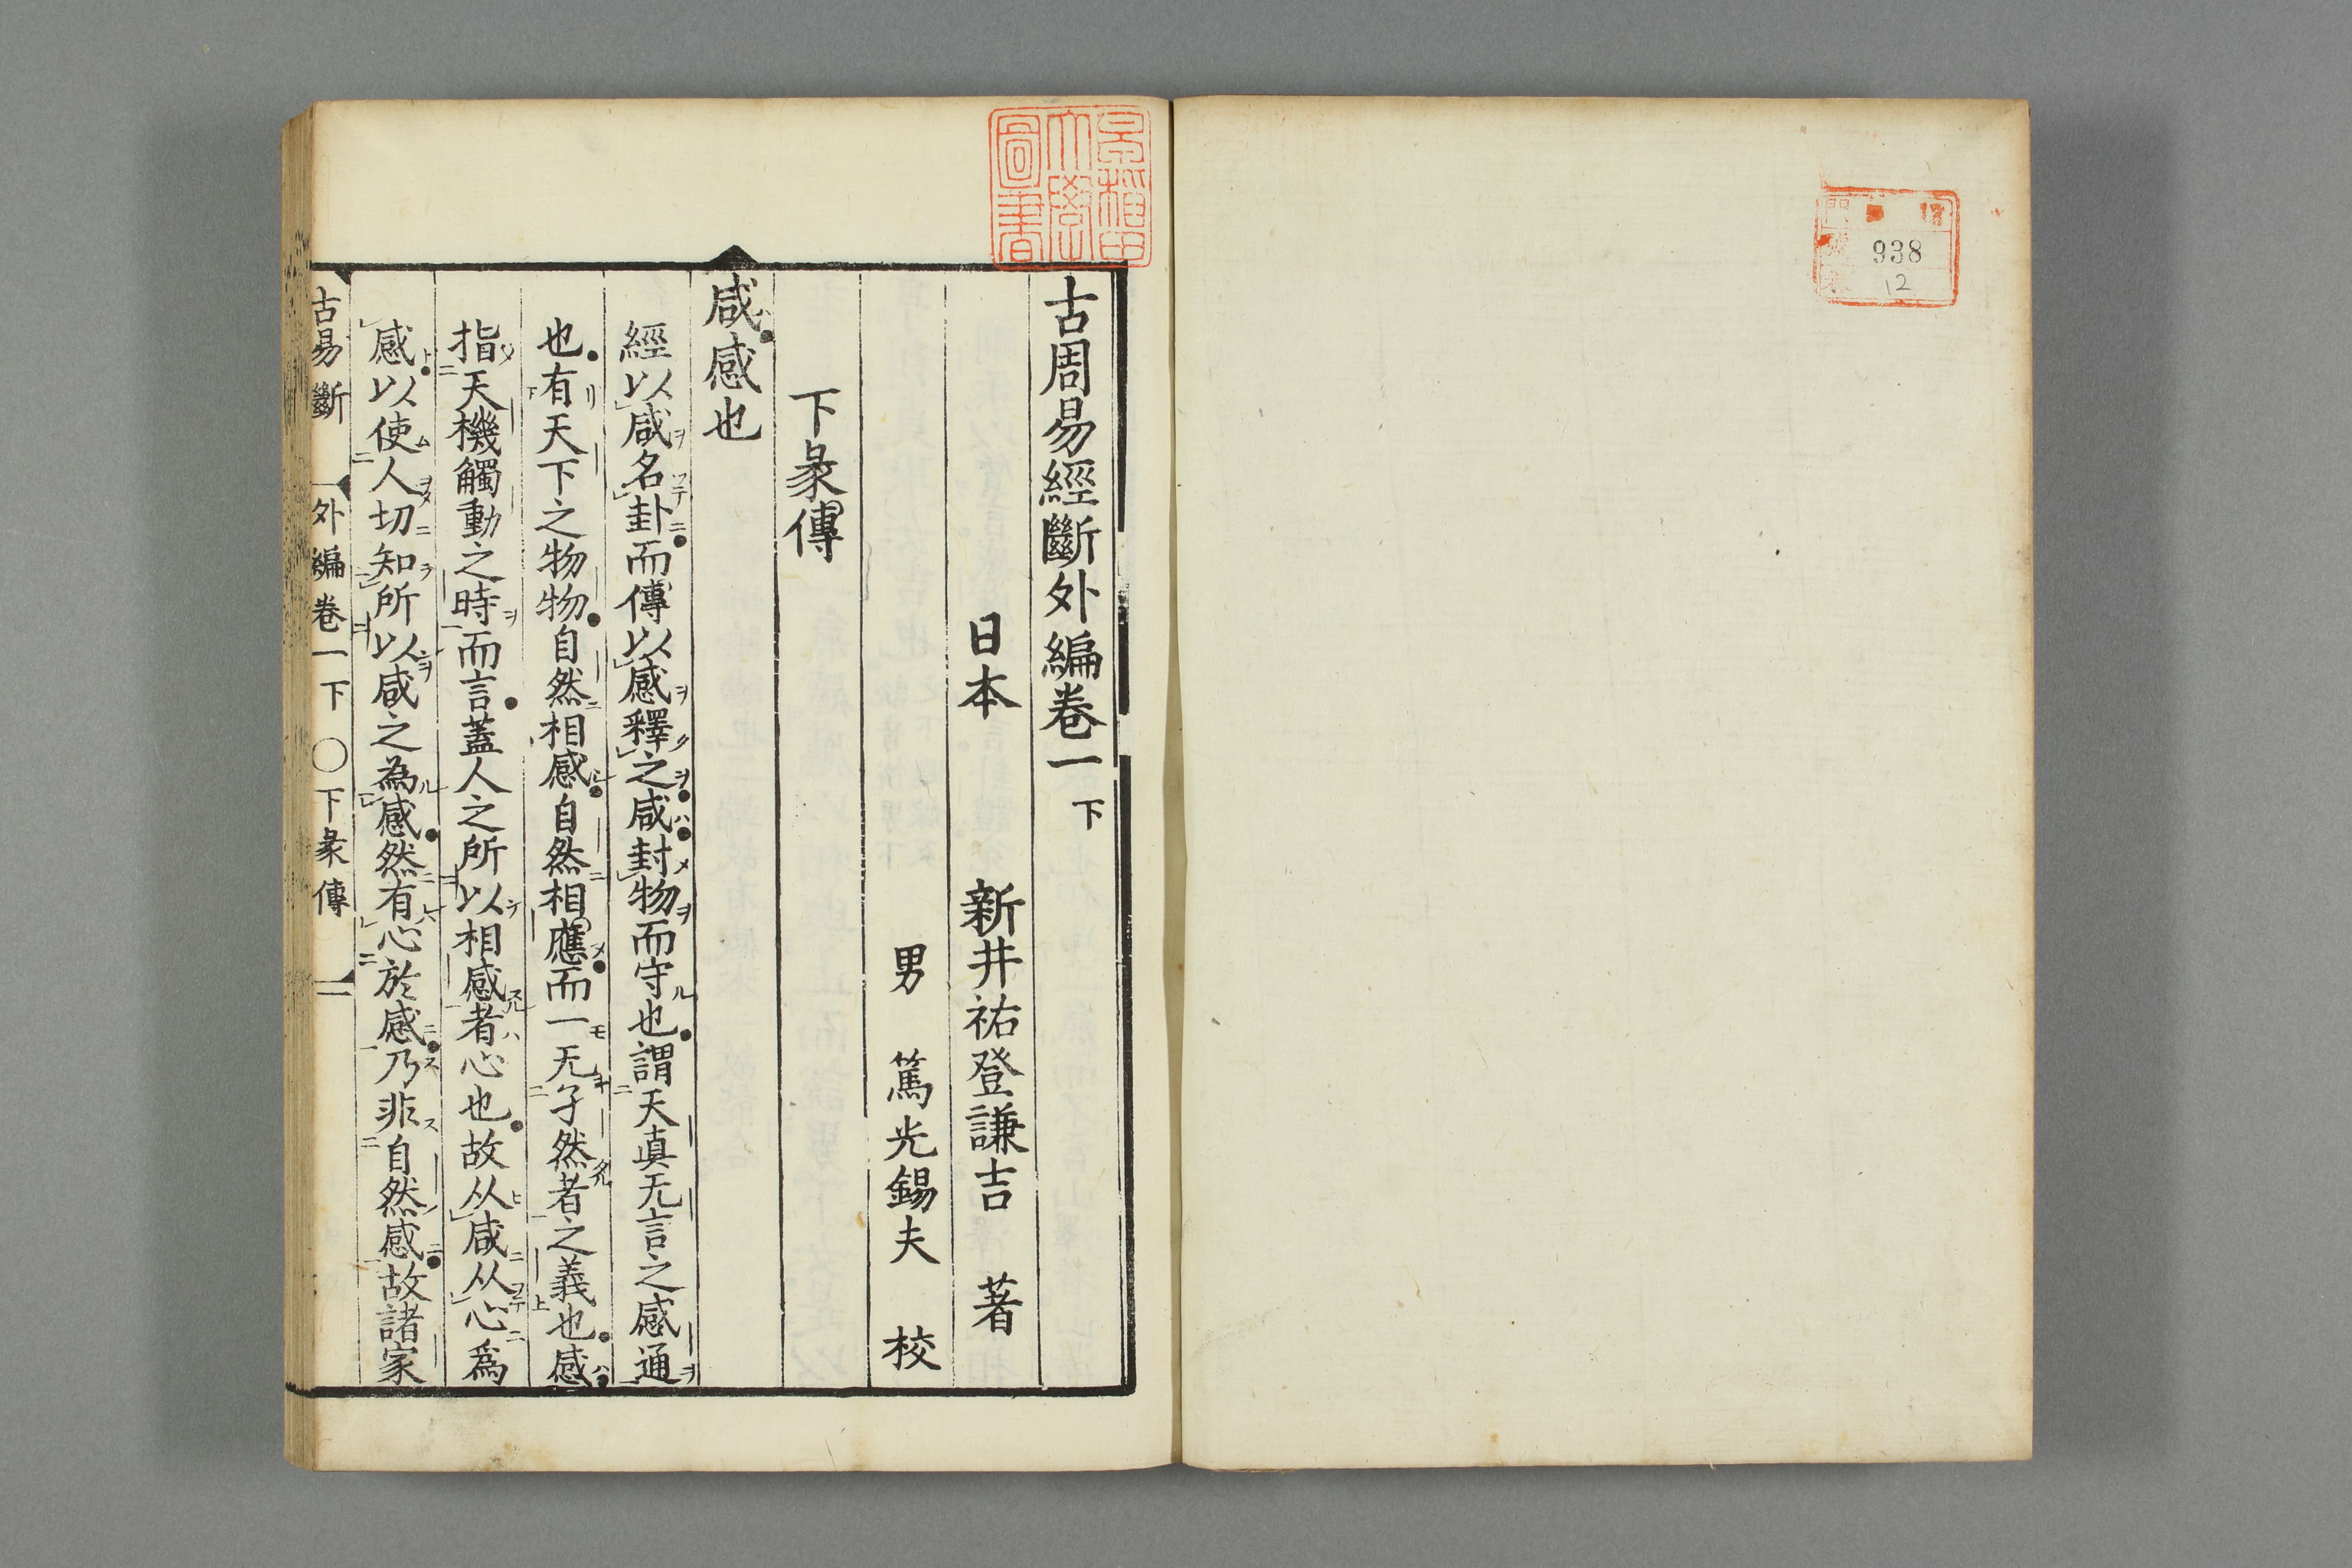 938
12
早稲田
大學
圖書
古周易經斷外編卷一下
日本 新井祐登謙吉 著
男 篤光錫夫 校
下彖傳
咸感也
經以咸名卦而傳以感釋之咸封物而守也謂天眞无言之感通
也有天下之物物自然相感自然相應而一无孑然者之義也感
指天機觸動之時而言蓋人之所以相感者心也故从咸从心爲
感以使人切知所以咸之為感然有心於感乃非自然感故諸家
古易斷 外編卷一下 〇下彖傳 一